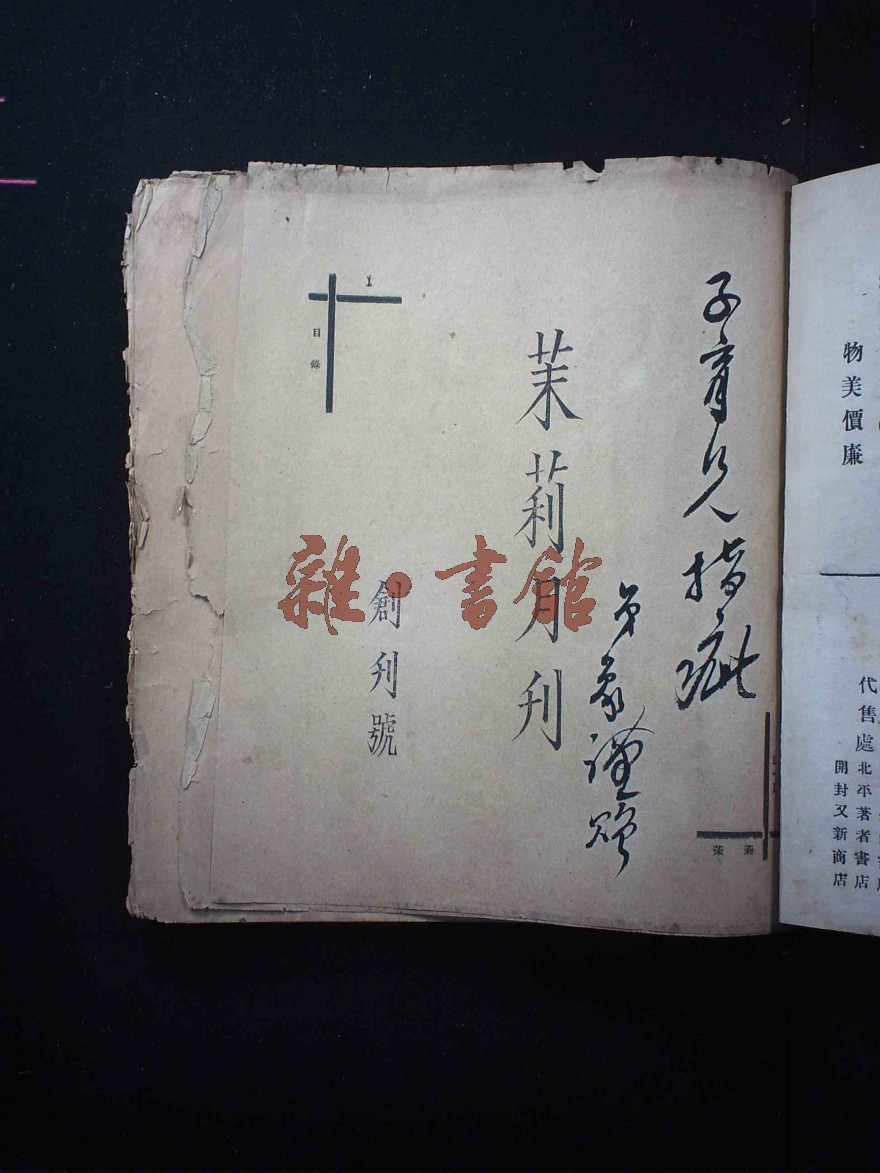 物美價廉
代售處
北平著者書店
開封又新商店
子育兄指疵
弟豪謹贈
茉莉月刊
創刊號
1
目錄
雜·書館